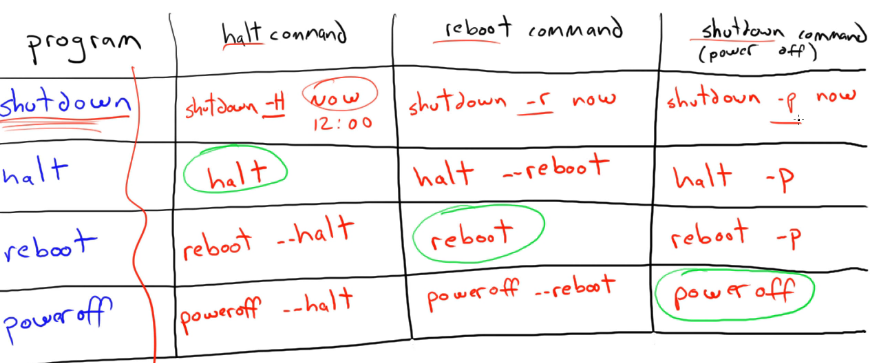 program halt command reboot command shutdown command
(power off)
shutdown shutdown -H now shutdown -r now shutdown -p now
12:00
halt halt halt --reboot halt -p
reboot reboot --halt reboot reboot -p
poweroff poweroff --halt poweroff --reboot poweroff